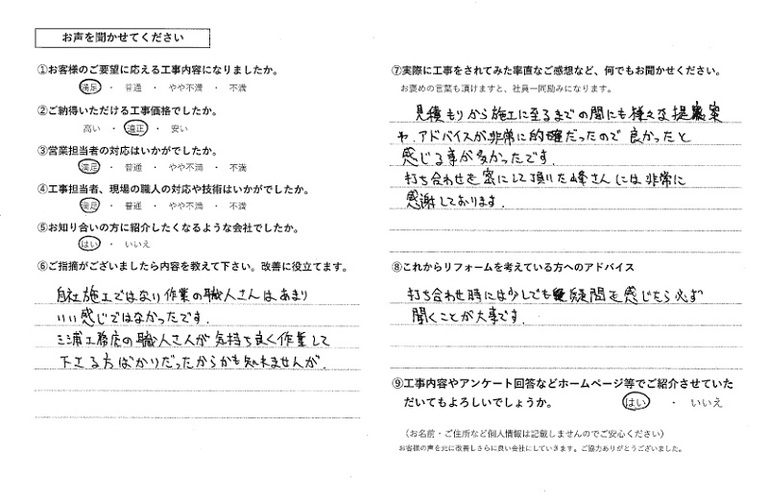 お声を聞かせてください
①お客様のご要望に応える工事内容になりましたか。
満足 ・ 普通 ・ やや不満 ・ 不満
②ご納得いただける工事価格でしたか。
高い ・ 適正 ・ 安い
③営業担当者の対応はいかがでしたか。
満足 ・ 普通 ・ やや不満 ・ 不満
④工事担当者、現場の職人の対応や技術はいかがでしたか。
満足 ・ 普通 ・ やや不満 ・ 不満
⑤お知り合いの方に紹介したくなるような会社でしたか。
はい ・ いいえ
⑥ご指摘がございましたら内容を教えて下さい。改善に役立てます。
自社施工ではない作業の職人さんは、あまり
いい感じではなかったです.
三浦工務店の職人さんが気持ち良く作業して
下さる方ばかりだったからかも知れませんが.
⑦実際に工事をされてみた率直なご感想など、何でもお聞かせください。
お褒めの言葉も頂けますと、社員一同励みになります。
見積もりから施工に至るまでの間にも様々な提案
や、アドバイスが非常に的確だったので良かったと
感じる事が多かったです.
打ち合わせを密にして頂いた峰さんには非常に
感謝しております.
⑧これからリフォームを考えている方へのアドバイス
打ち合わせ時には少しでも疑問を感じたら必ず
聞くことが大事です.
⑨工事内容やアンケート回答などホームページ等でご紹介させていた
だいてもよろしいでしょうか。 はい ・ いいえ
(お名前・ご住所など個人情報は記載しませんのでご安心ください)
お客様の声を元に改善しさらに良い会社にしていきます。ご協力ありがとうございました。